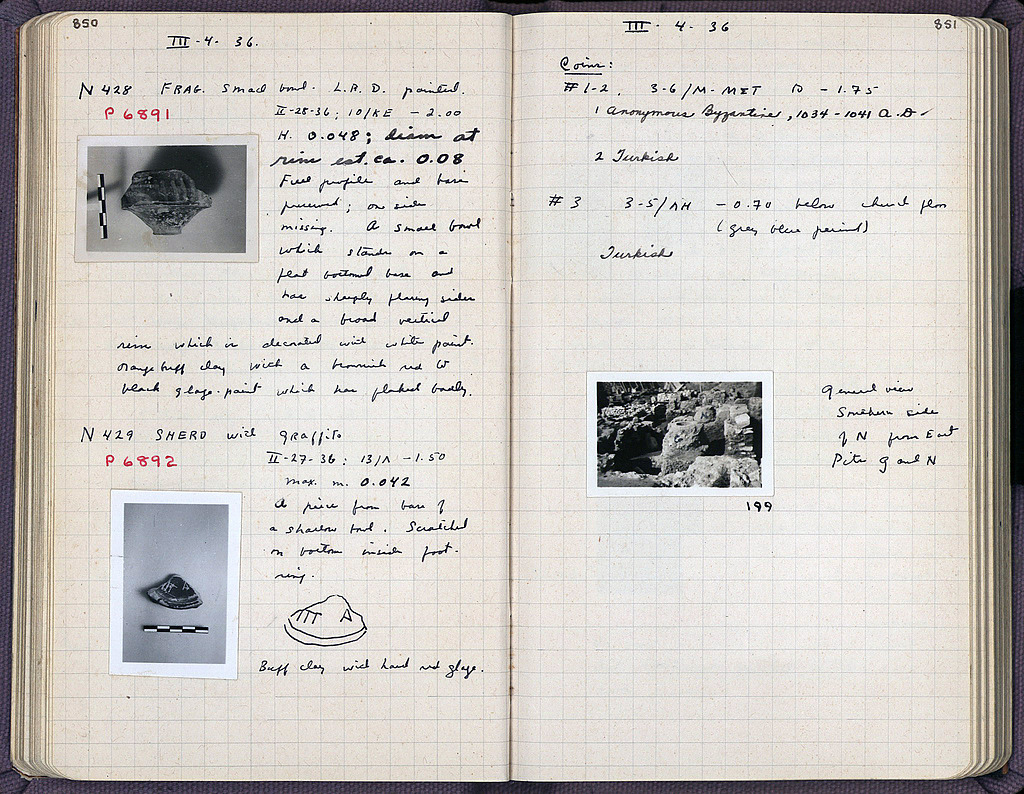 850
III-4-36.
N 428 FRAG. Small bowl. L.R.D. painted.
P 6891
II-28-36; 10/KE -2.00
H. 0.048; diam at
rim est. ca. 0.08
Full profile and base
preserved; one side
missing. A small bowl
which stands on a
flat bottomed base and
has sharply flaring sides
and a broad vertical
rim which is decorated with white paint.
Orange buff clay with a brownish red to
black glaze-paint which has flaked badly.
N 429 SHERD with graffito
P 6892
II-27-36: 13/Λ -1.50
max. m. 0.042
A piece from base of
a shallow bowl. Scratched
on bottom inside foot-
ring.
III A
Buff clay with hard red glaze.
851
III-4-36
Coins:
#1-2. 3-6/M-MΣT -1.75
1 Anonymous Byzantine, 1034-1041 A.D.
2 Turkish
#3 3-5/ΛH -0.70 below church floor
(grey blue period)
Turkish
General view
Southern side
of N from East
Pits g and N
199